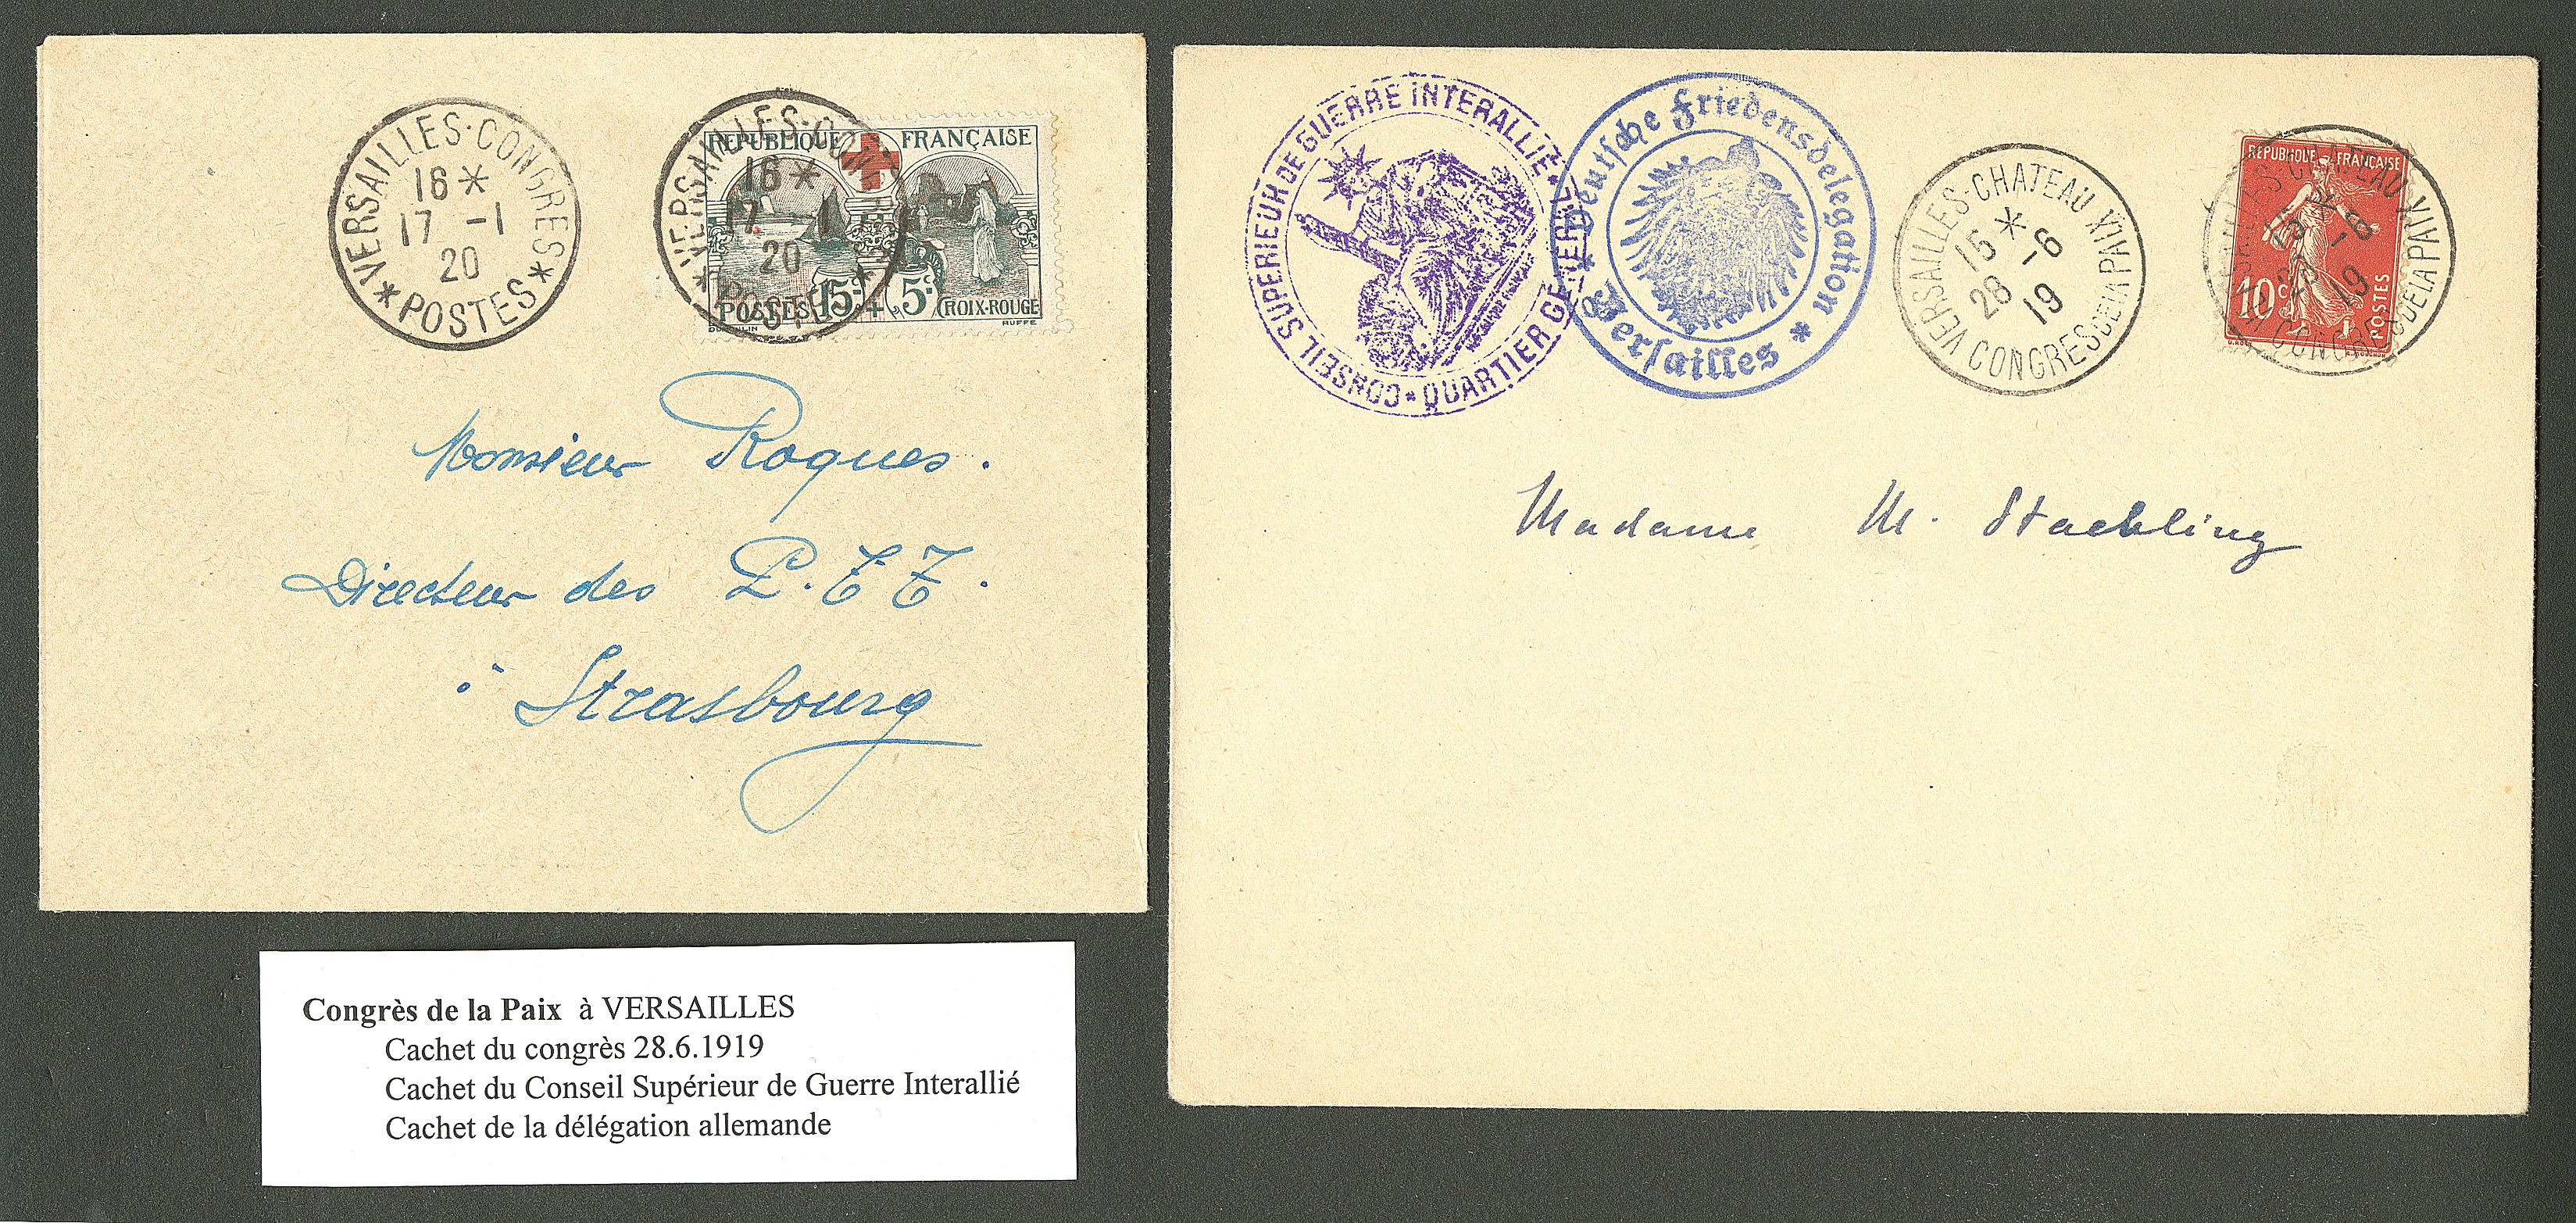 VERSAILLES·CONGRES
16*
17 -1
20
* POSTES *
VERSAILLES·CONGRES
16*
17 -1
20
* POSTES *
REPUBLIQUE FRANÇAISE
POSTES 15c + 5c CROIX-ROUGE
RUFFE
Monsieur Roques.
Directeur des P.T.T.
à Strasbourg
CONSEIL SUPERIEUR DE GUERRE INTERALLIÉ * QUARTIER GENERAL *
Deutsche Friedensdelegation
* Versailles *
VERSAILLES-CHATEAU
15 *
28 -6
19
CONGRES DE LA PAIX
REPUBLIQUE FRANÇAISE
10c
POSTES
15 *
28 -6
19
CONGRES DE LA PAIX
Madame M. Staehling
Congrès de la Paix à VERSAILLES
Cachet du congrès 28.6.1919
Cachet du Conseil Supérieur de Guerre Interallié
Cachet de la délégation allemande